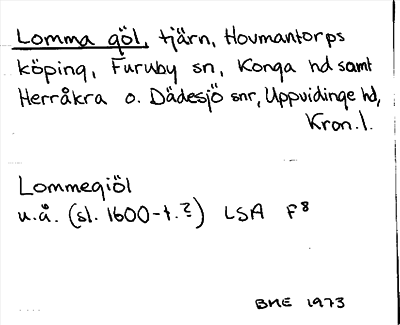 Lomma göl, tjärn, Hovmantorps
köping, Furuby sn, Konga hd samt
Herråkra o. Dädesjö snr, Uppvidinge hd,
Kron.l.
Lommegiöl
u.å. (sl. 1600-t.?) LSA F8
BME 1973